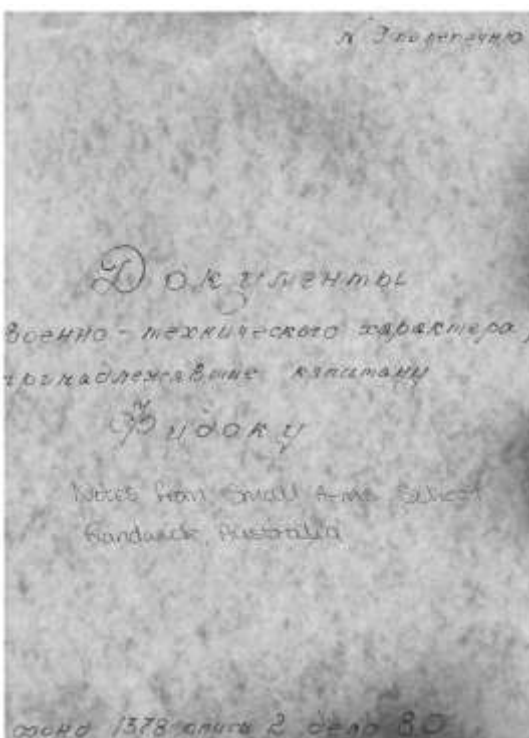 N 3 по перечню
Документы
военно-технического характера,
принадлежавшие капитану
Видоку
Notes from Small Arms School
Randwick, Australia
фонд 1378 опись 2 дело 80